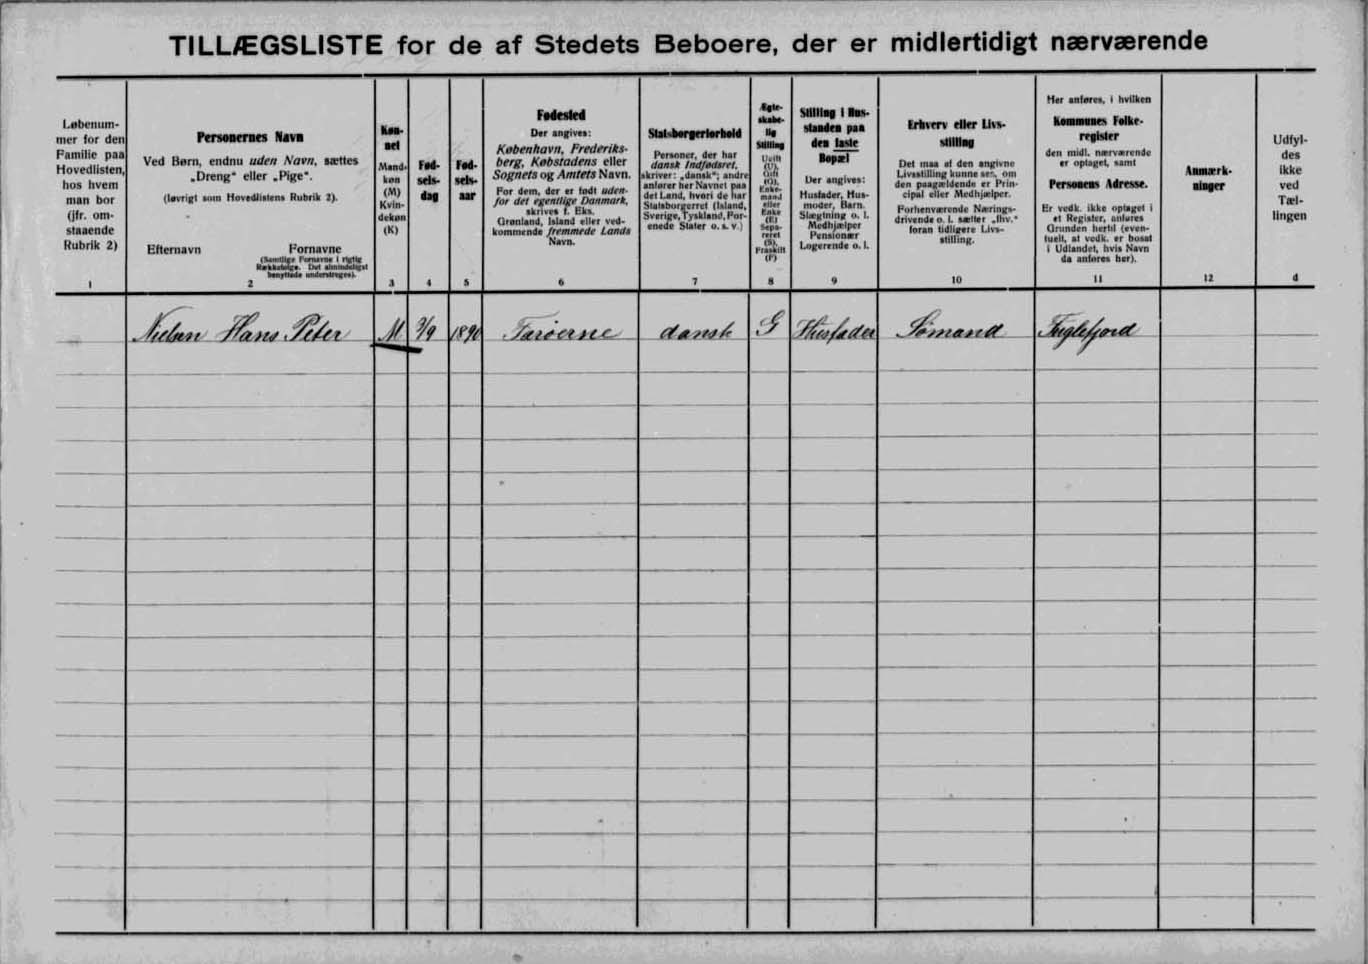 TILLÆGSLISTE for de af Stedets Beboere, der er midlertidigt nærværende
Løbenum-
mer for den
Familie paa
Hovedlisten,
hos hvem
man bor
(jfr. om-
staaende
Rubrik 2)
1
Personernes Navn
Ved Børn, endnu uden Navn, sættes
„Dreng“ eller „Pige“.
(Iøvrigt som Hovedlistens Rubrik 2).
Efternavn Fornavne
(Samtlige Fornavne i rigtig
Rækkefølge. Det almindeligst
benyttede understreges).
2
Køn-
net
Mand-
køn
(M)
Kvin-
dekøn
(K)
3
Fød-
sels-
dag
4
Fød-
sels-
aar
5
Fødested
Der angives:
København, Frederiks-
berg, Købstadens eller
Sognets og Amtets Navn.
For dem, der er født uden-
for det egentlige Danmark,
skrives f. Eks.
Grønland, Island eller ved-
kommende fremmede Lands
Navn.
6
Statsborgerforhold
Personer, der har
dansk Indfødsret,
skriver: „dansk“; andre
anfører her Navnet paa
det Land, hvori de har
Statsborgerret (Island,
Sverige, Tyskland, For-
enede Stater o. s. v.)
7
Ægte-
skabe-
lig
Stilling
Ugift
(U),
Gift
(G),
Enke-
mand
eller
Enke
(E)
Sepa-
reret
(S),
Fraskilt
(F)
8
Stilling i Hus-
standen paa
den faste
Bopæl
Der angives:
Husfader, Hus-
moder, Barn.
Slægtning o. l.
Medhjælper
Pensionær
Logerende o. l.
9
Erhverv eller Livs-
stilling
Det maa af den angivne
Livsstilling kunne ses, om
den paagældende er Prin-
cipal eller Medhjælper.
Forhenværende Nærings-
drivende o. l. sætter „fhv.“
foran tidligere Livs-
stilling.
10
Her anføres, i hvilken
Kommunes Folke-
register
den midl. nærværende
er optaget, samt
Personens Adresse.
Er vedk. ikke optaget i
et Register, anføres
Grunden hertil (even-
tuelt, at vedk. er bosat
i Udlandet, hvis Navn
da anføres her).
11
Anmærk-
ninger
12
Udfyl-
des
ikke
ved
Tæl-
lingen
d
Nielsen Hans Peter M 3/9 1890 Færøerne dansk G Husfader Sømand Fuglefjord